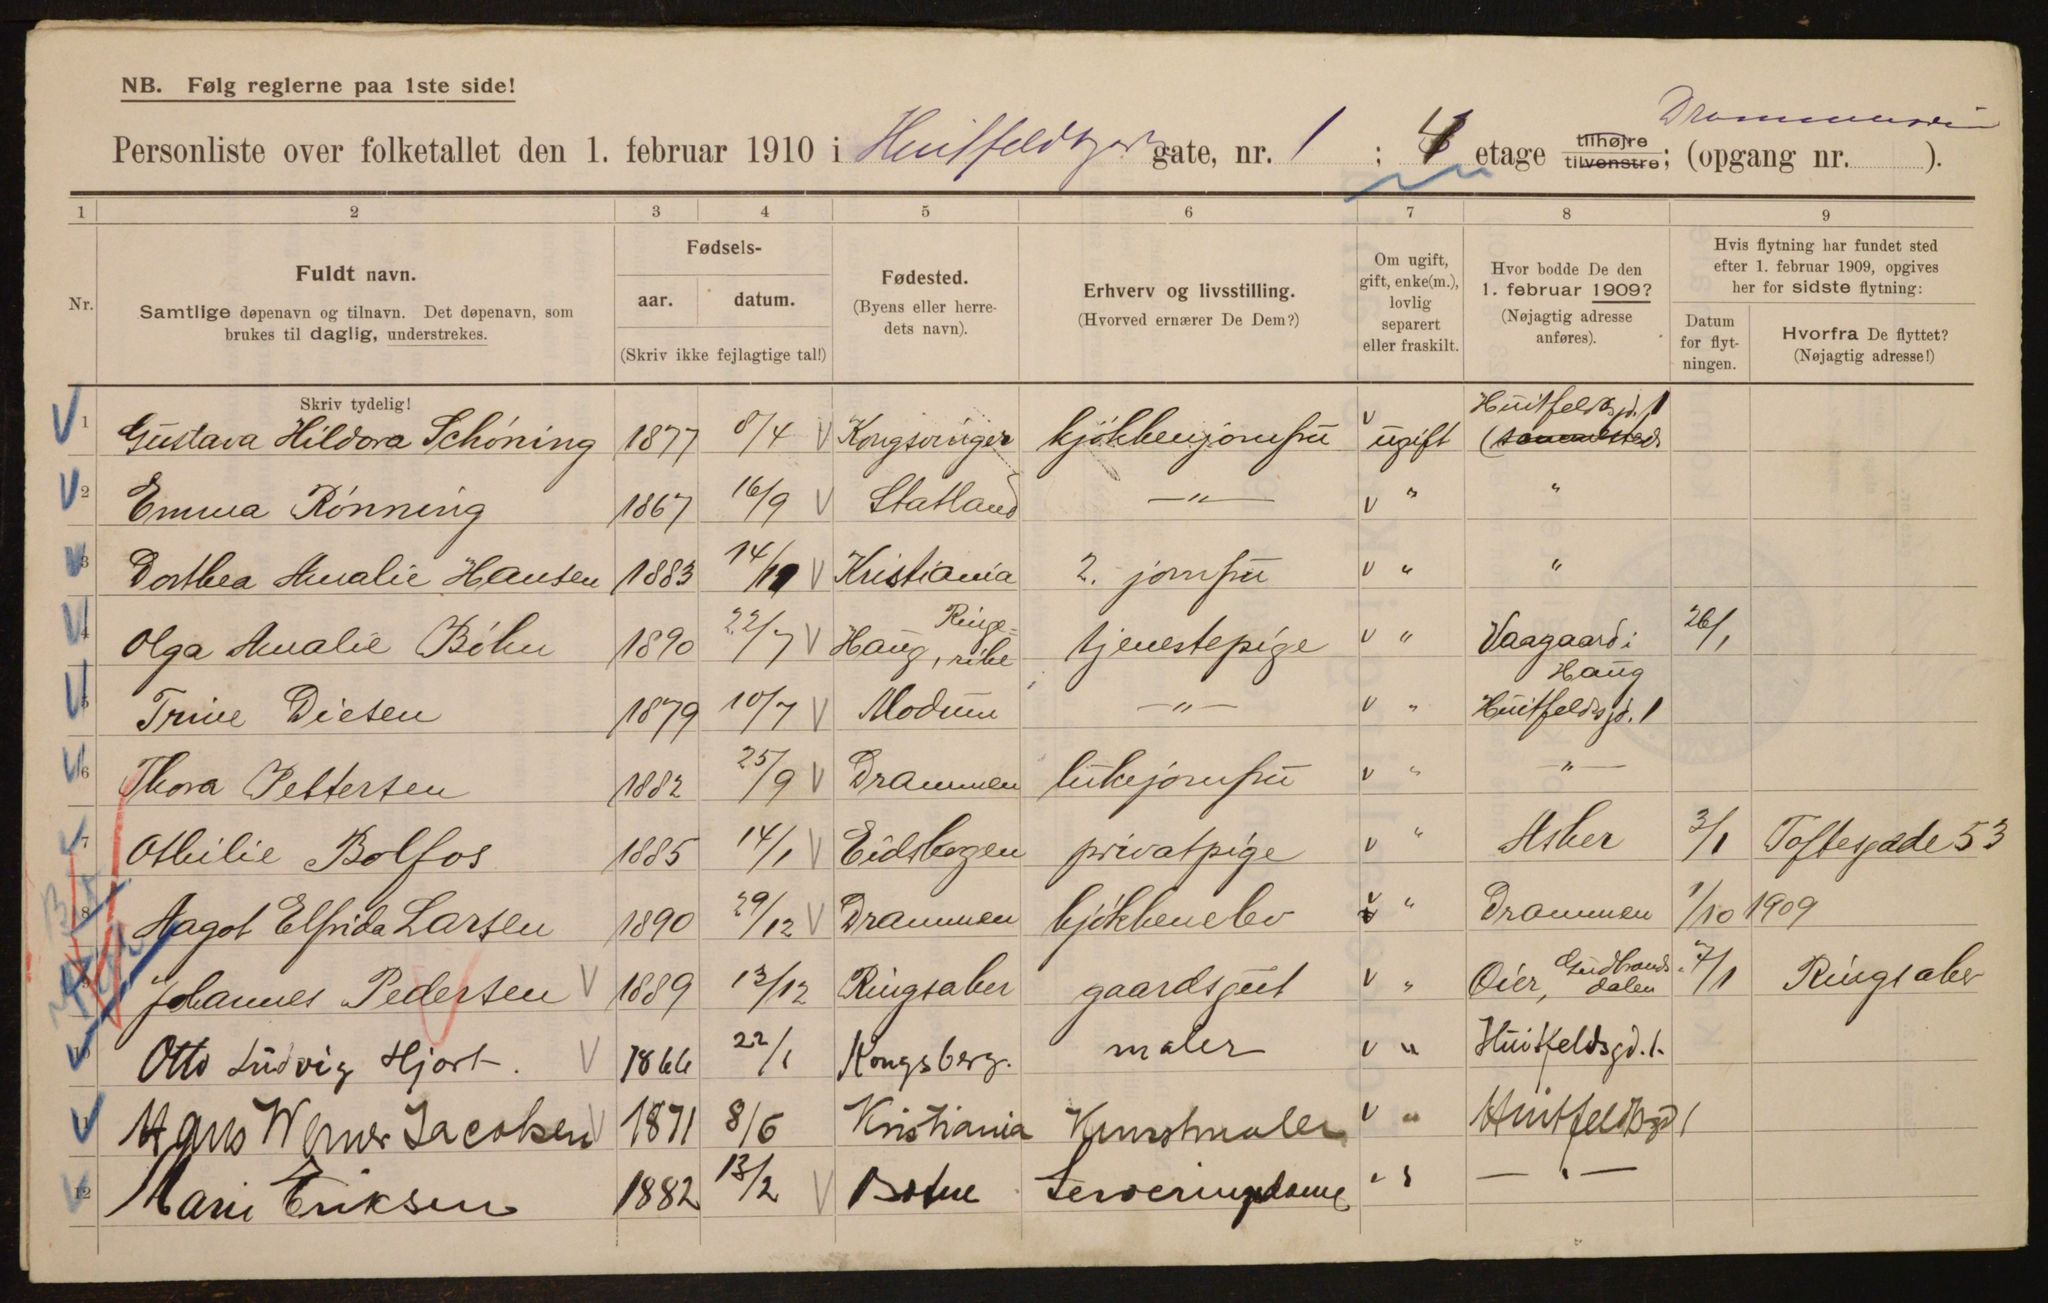 NB. Følg reglerne paa 1ste side!
Drammensvein
Personliste over folketallet den 1. februar 1910 i Huitfeldtsgt gate, nr. 1 ; 4 etage tilhøjre tilvenstre; (opgang nr. ).
1 2 3 4 5 6 7 8 9
Nr.
Fuldt navn.
Samtlige døpenavn og tilnavn. Det døpenavn, som
brukes til daglig, understrekes.
Fødsels-
aar. datum.
(Skriv ikke fejlagtige tal!)
Fødested.
(Byens eller herre-
dets navn).
Erhverv og livsstilling.
(Hvorved ernærer De Dem?)
Om ugift,
gift, enke(m.),
lovlig
separert
eller fraskilt.
Hvor bodde De den
1. februar 1909?
(Nøjagtig adresse
anføres).
Hvis flytning har fundet sted
efter 1. februar 1909, opgives
her for sidste flytning:
Datum
for flyt-
ningen.
Hvorfra De flyttet?
(Nøjagtig adresse!)
Skriv tydelig!
1 Gustava Hildora Schöning 1877 8/4 Kongsvinger kjøkkenjomfru ugift Huitfeldtsgd. 1 (sammesteds
2 Emma Rönning 1867 16/9 Statland —"— " "
3 Dorthea Amalie Hansen 1883 14/11 Kristiania 2. jomfru " "
4 Olga Amalie Böhn 1890 22/7 Haug, Ringerike tjenestepige " Vaagaard i Haug 26/1
5 Trine Diesen 1879 10/7 Modum —"— " Huitfeldsgd. 1
6 Thora Pettersen 1882 25/9 Drammen lukejomfru " —"—
7 Othilie Bolfos 1885 14/1 Eidskogen privatpige " Asker 3/1 Toftesgade 53
8 Aagot Elfrida Larsen 1890 29/12 Drammen kjøkkenelev " Drammen 1/10 1909
9 Johannes Pedersen 1889 13/12 Ringsaker gaardsgut " Öier, Gudbrandsdalen 7/1 Ringsaker
10 Otto Ludvig Hjort. 1866 22/1 Kongsberg. maler " Huitfeldsgd. 1.
11 Hans Werner Jacobsen 1871 8/6 Kristiania Kunstmaler " Huitfeldtsgd 1
12 Marie Eriksen 1882 13/2 Botne Serveringsdame " —"—